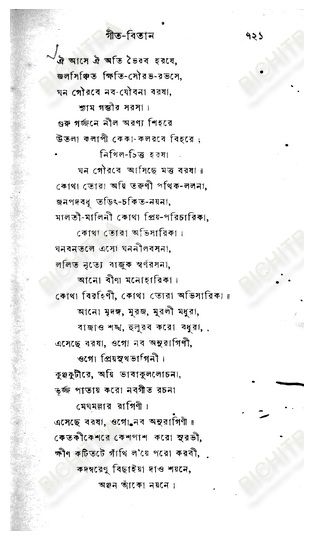 গীত-বিতান ৭২১
ঐ আসে ঐ অতি ভৈরব হরষে,
জলসিঞ্চিত ক্ষিতি-সৌরভ-রভসে,
ঘন গৌরবে নব-যৌবনা বরষা,
শ্যাম গম্ভীর সরসা।
গুরু গর্জ্জনে নীল অরণ্য শিহরে
উতলা কলাপী কেকা-কলরবে বিহরে;
নিখিল-চিত্ত হরষা
ঘন গৌরবে আসিছে মত্ত বরষা॥
কোথা তোরা অয়ি তরুণী পথিক-ললনা,
জনপদবধূ তড়িৎ-চকিত-নয়না,
মালতী-মালিনী কোথা প্রিয়-পরিচারিকা,
কোথা তোরা অভিসারিকা।
ঘনবনতলে এসো ঘননীলবসনা,
ললিত নৃত্যে বাজুক স্বর্ণরসনা,
আনো বীণা মনোহারিকা।
কোথা বিরহিণী, কোথা তোরা অভিসারিকা॥
আনো মৃদঙ্গ, মুরজ, মুরলী মধুরা,
বাজাও শঙ্খ, হুলুরব করো বধুরা,
এসেছে বরষা, ওগো নব অনুরাগিণী,
ওগো প্রিয়সুখভাগিনী।
কুঞ্জকুটীরে, অয়ি ভাবাকুললোচনা,
ভূর্জ্জ পাতায় করো নবগীত রচনা
মেঘমল্লার রাগিণী।
এসেছে বরষা, ওগো নব অনুরাগিণী॥
কেতকীকেশরে কেশপাশ করো সুরভী,
ক্ষীণ কটিতটে গাঁথি ল'য়ে পরো করবী,
কদম্বরেণু বিছাইয়া দাও শয়নে,
অঞ্জন আঁকো নয়নে।
BICHITRA